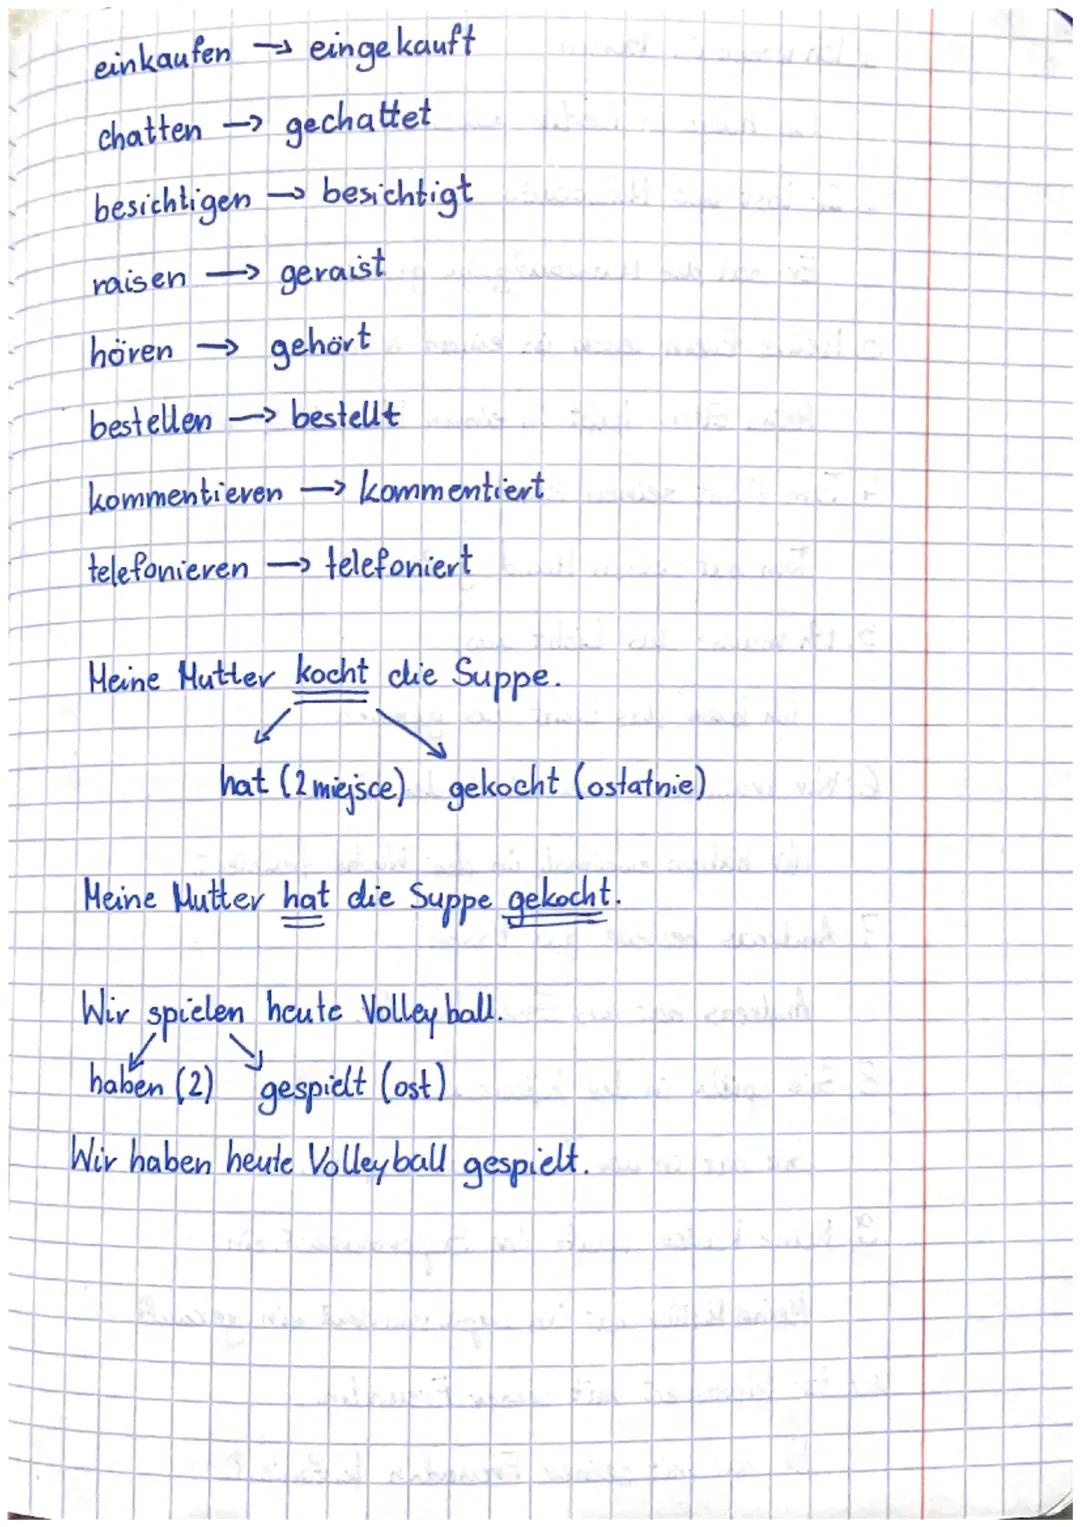 einkaufen → eingekauft
chatten → gechattet
besichtigen → besichtigt
raisen → geraist
hören → gehört
bestellen → bestellt
kommentieren → kommentiert
telefonieren → telefoniert
Meine Mutter kocht die Suppe.
hat (2 miejsce) gekocht (ostatnie)
Meine Mutter hat die Suppe gekocht.
Wir spielen heute Volleyball.
haben (2) gespielt (ost)
Wir haben heute Volleyball gespielt.